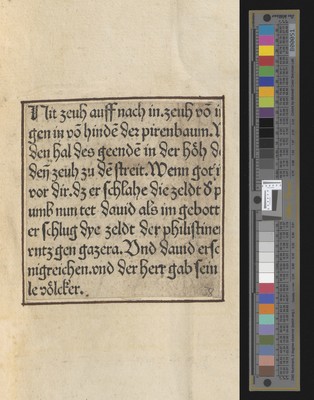 Nit zeuh auff nach in. zeuh vō
gen in vō hindē der pirenbaum.
den hal des geendē in der höh
deñ zeuh zu dē streit. Wenn got
vor dir. dz er schlahe die zeldt d̕ p
umb nun tet dauid als im gebott
er schlug dye zeldt der philistine
vntz gen gazera. Vnd dauid erſc
nigreichen. vnd der herr gab sein
le völcker.